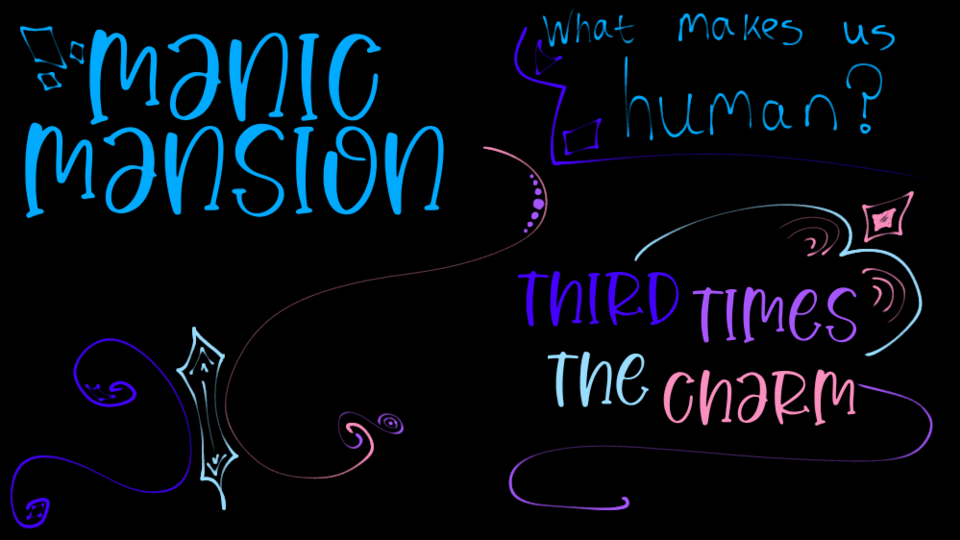 manic
mansion
What makes us
human?
THIRD TIMES
THE CHARM